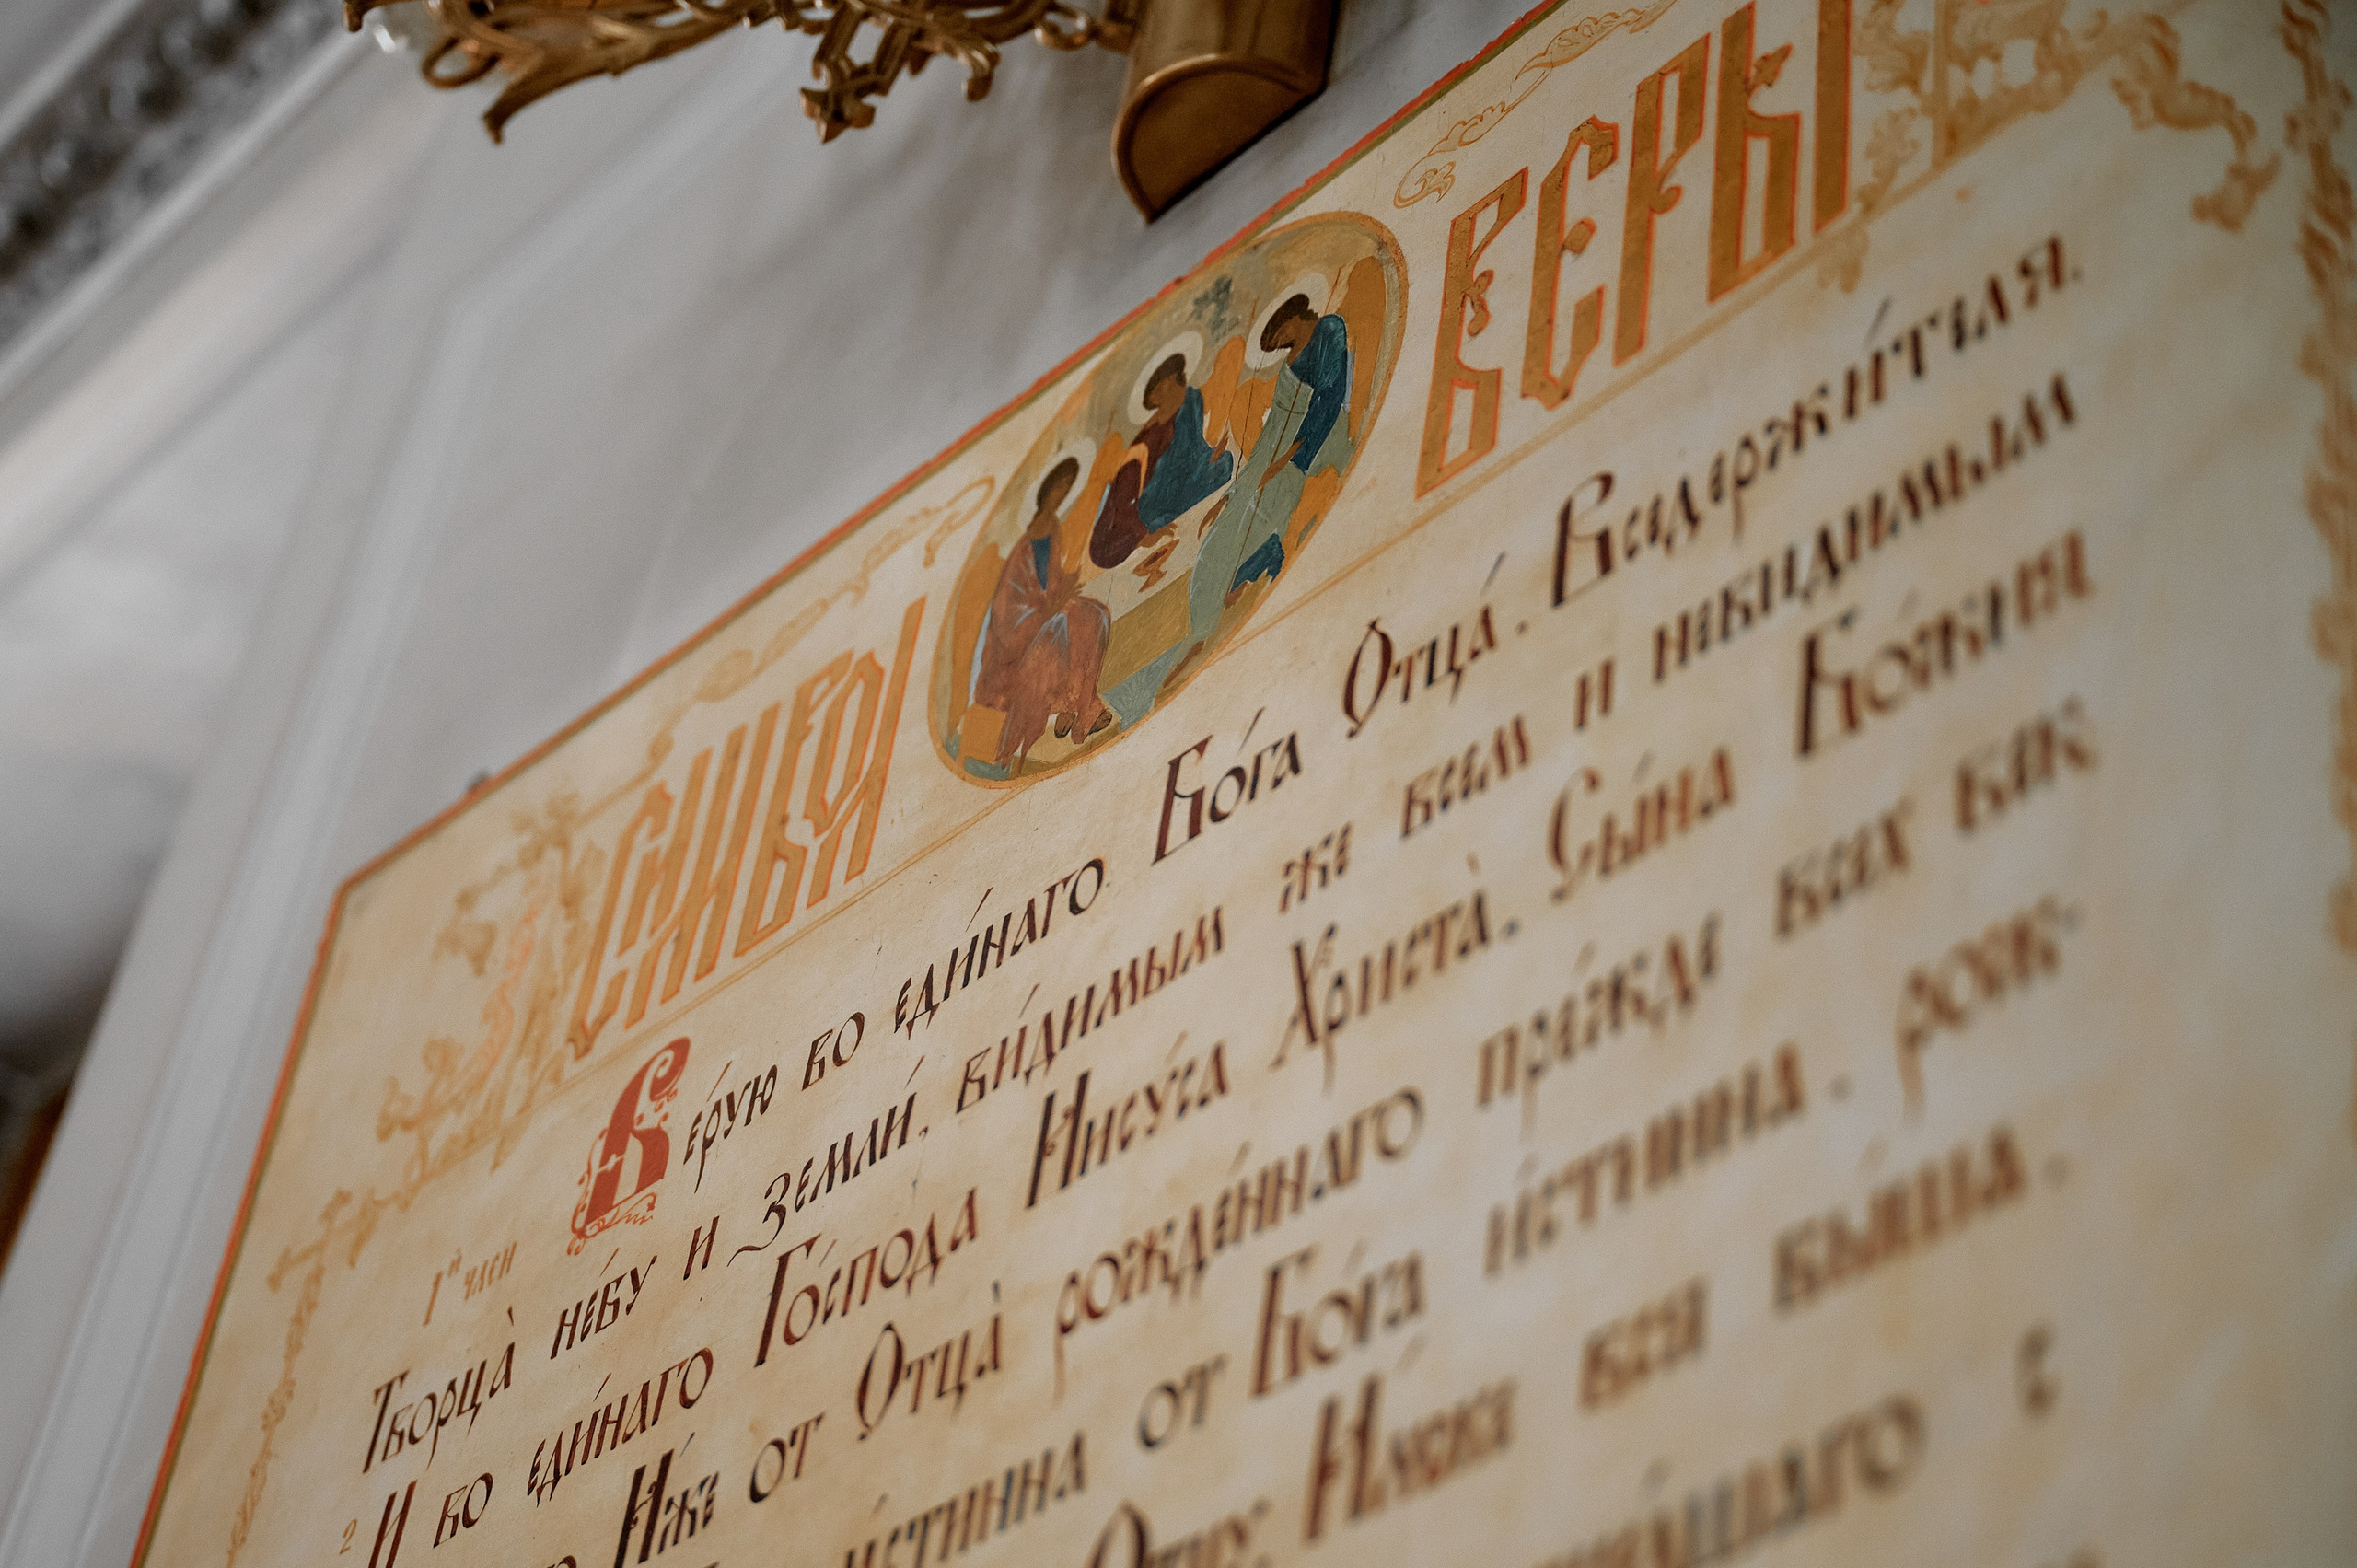 СИМВОЛ ВЕРЫ
1й член
Ве́рую во еди́наго Бо́га Отца́. Вседержи́теля.
Творца̀ не́бу и Земли́, ви́димым же всем и невидимым
2 И во еди́наго Го́спода Иису́са Христа̀. Сы́на Бо́жия
И́же от Отца̀ рожде́ннаго пре́жде всех век
и́стинна от Бо́га и́стинна. рож-
И́мже вся бы́ша.